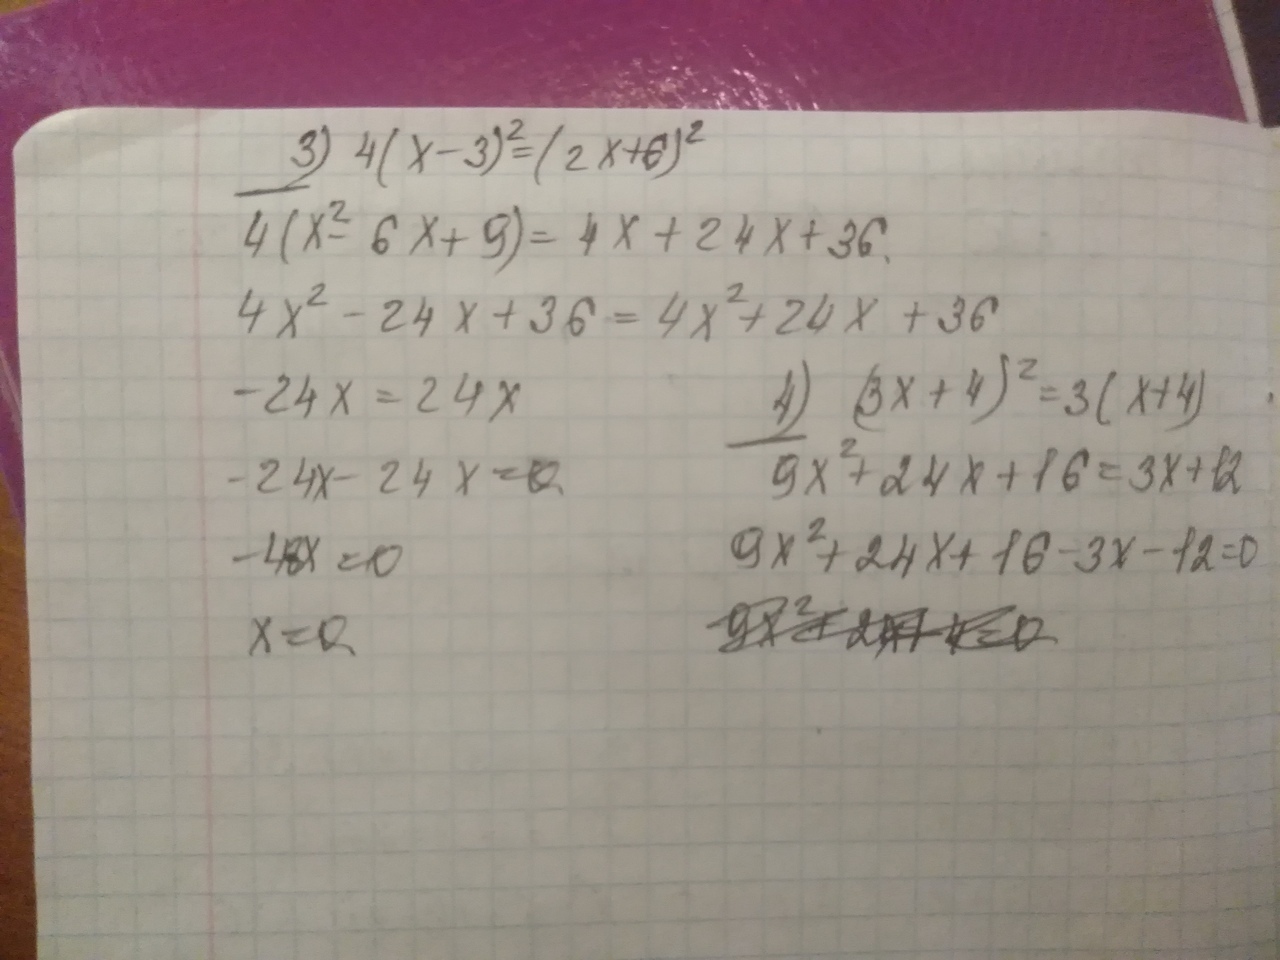 3) 4(x-3)²=(2x+6)²
4(x²-6x+9)=4x+24x+36.
4x²-24x+36=4x²+24x+36
-24x=24x
-24x-24x=0
-48x=0
x=0
4) (3x+4)²=3(x+4)
9x²+24x+16=3x+12
9x²+24x+16-3x-12=0